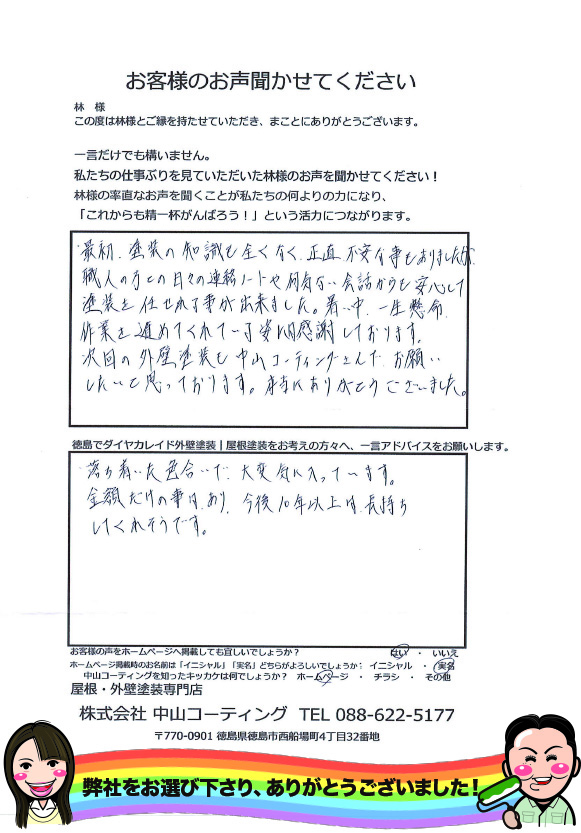 お客様のお声聞かせてください
林　様
この度は林様とご縁を持たせていただき、まことにありがとうございます。
一言だけでも構いません。
私たちの仕事ぶりを見ていただいた林様のお声を聞かせてください！
林様の率直なお声を聞くことが私たちの何よりの力になり、
「これからも精一杯がんばろう！」という活力につながります。
最初、塗装の知識も全くなく、正直 不安な事もありましたが、
職人の方との日々の連絡ノートや何気ない会話からも安心して
塗装を任せれる事が出来ました。暑い中、一生懸命、
作業を進めてくれている姿に感謝しております。
次回の外壁塗装も中山コーティングさんで、お願い
したいと思っております。本当にありがとうございました。
徳島でダイヤカレイド外壁塗装｜屋根塗装をお考えの方々へ、一言アドバイスをお願いします。
落ち着いた色合いで、大変気に入っています。
金額だけの事は、あり、今後10年以上は、長持ち
してくれそうです。
お客様の声をホームページへ掲載しても宜しいでしょうか？　はい ・ いいえ
ホームページ掲載時のお名前は「イニシャル」「実名」どちらがよろしいでしょうか：イニシャル ・ 実名
中山コーティングを知ったキッカケは何でしょうか？　ホームページ ・ チラシ ・ その他
屋根・外壁塗装専門店
株式会社 中山コーティング　TEL 088-622-5177
〒770-0901 徳島県徳島市西船場町4丁目32番地
弊社をお選び下さり、ありがとうございました！